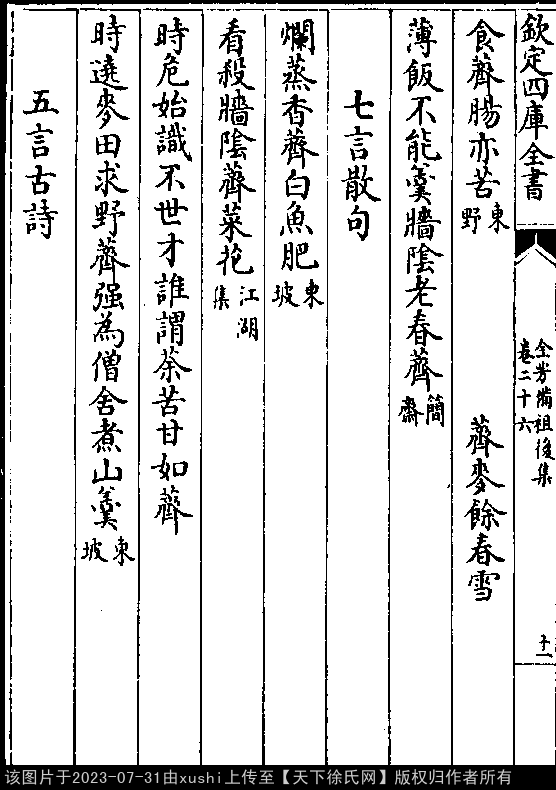 欽定四庫全書
全芳備祖後集
卷二十六
十一
食薺腸亦苦東野 薺麥餘春雪
薄飯不能羹牆陰老春薺簡齋
七言散句
爛蒸香薺白魚肥東坡
看殺牆陰薺菜花江湖集
時危始識不世才誰謂荼苦甘如薺
時遶麥田求野薺强為僧舍煮山羹東坡
五言古詩
该图片于2023-07-31由xushi上传至【天下徐氏网】版权归作者所有